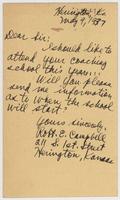 Herington, Ks
May 9, 1937
Dear Sir:
I should like to
attend your coaching
school this year.
Will you please
send me information
as to when the school
will start?
Yours sincerely,
Robt. E. Campbell
211 S. 1st. Street
Herington, Kansas